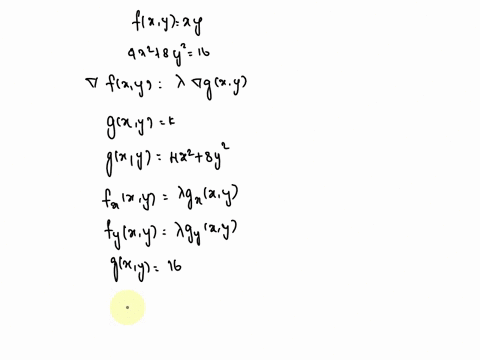 f(x,y)=xy
4x²+8y²=16
∇ f(x,y) = λ ∇g(x,y)
g(x,y)=k
g(x,y) = 4x²+8y²
fₓ(x,y) = λgₓ(x,y)
f_y(x,y) = λg_y(x,y)
g(x,y) = 16